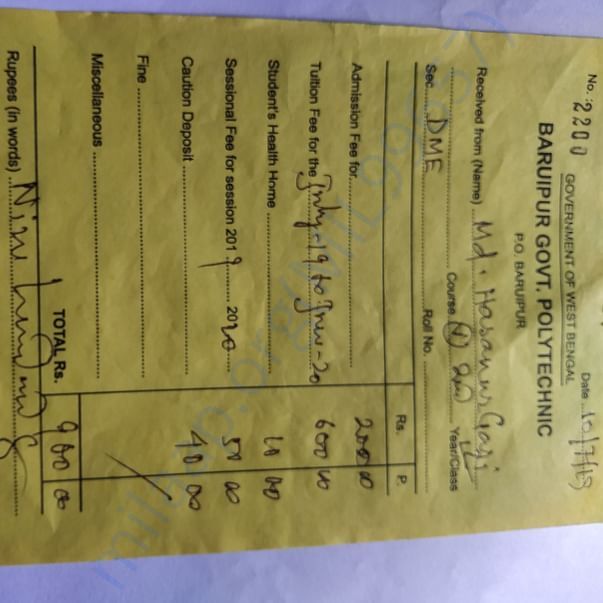 No. :2200 GOVERNMENT OF WEST BENGAL Date 10/7/19
BARUIPUR GOVT. POLYTECHNIC
P.O. BARUIPUR
Received from (Name) Md. Hasanur Gazi
Course 2nd Year/Class
Sec. DME Roll No.
Rs. P.
Admission Fee for 200 00
Tuition Fee for the July-19 to June-20 600 00
Student's Health Home 10 00
Sessional Fee for session 2019 2020 50 00
Caution Deposit 40 00
Fine
Miscellaneous
TOTAL Rs. 900 00
Rupees (in words) Nine hundred